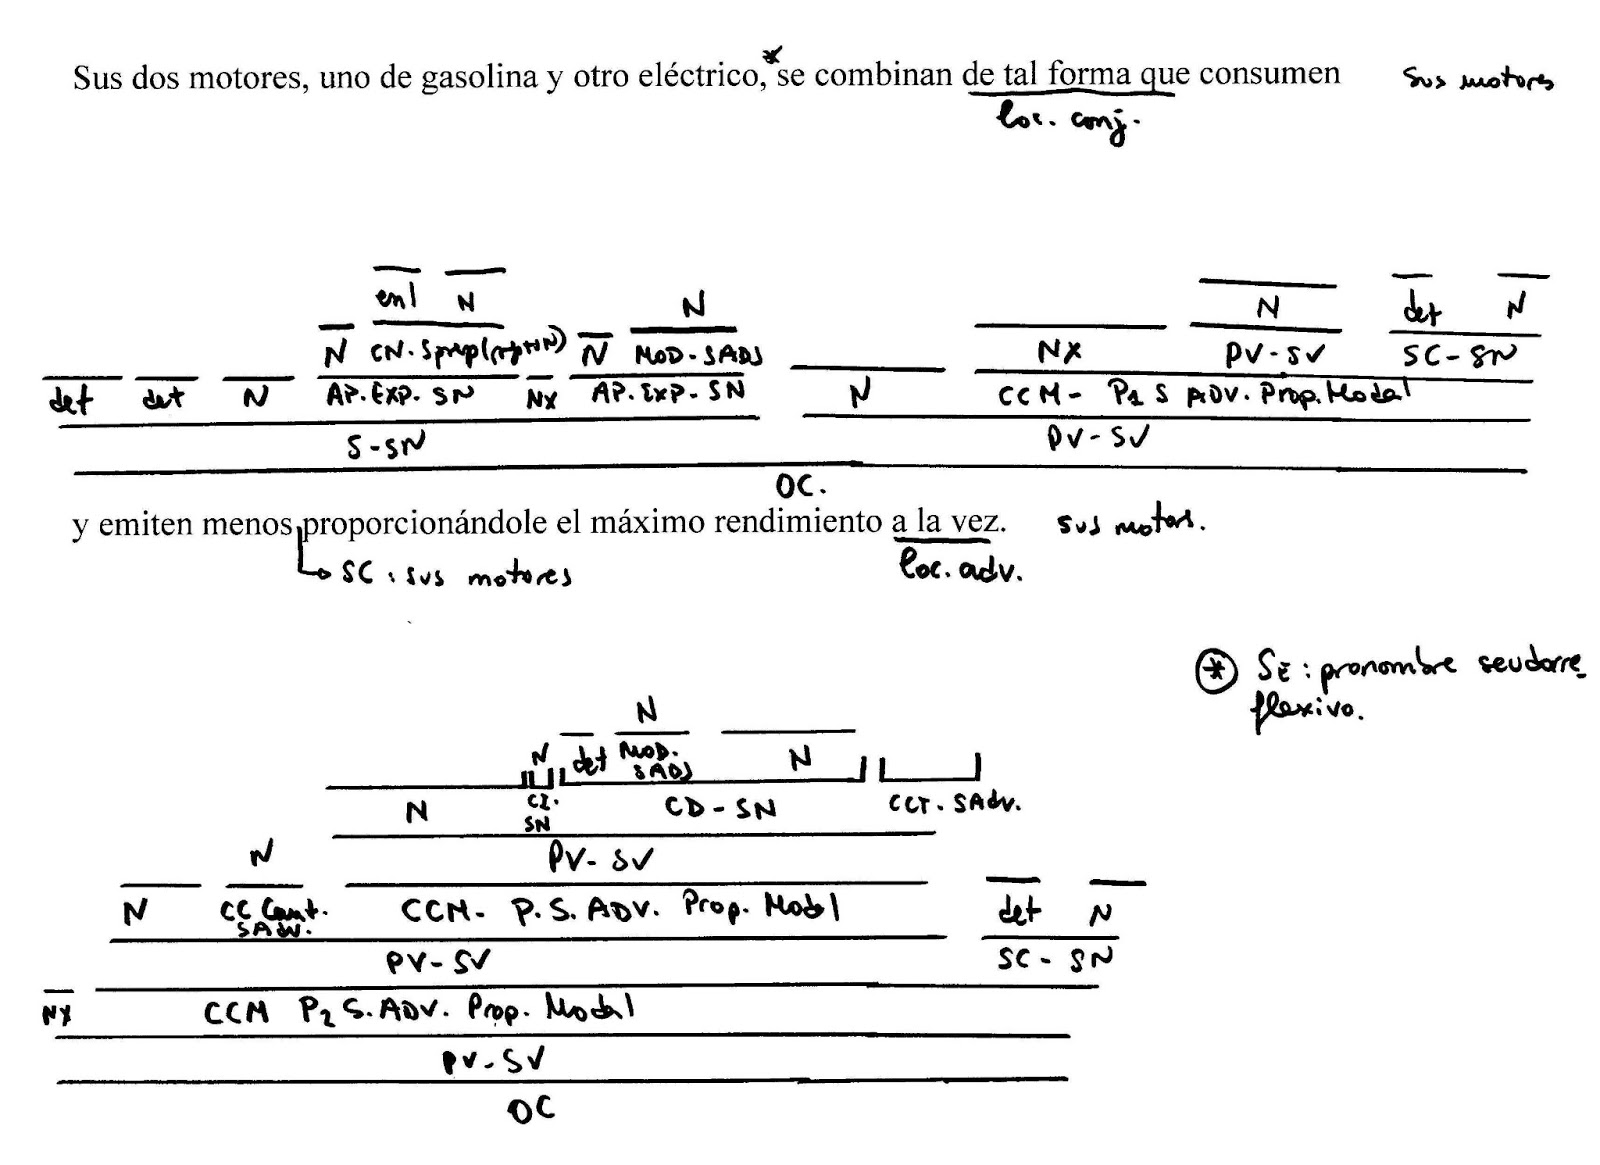 Sus dos motores, uno de gasolina y otro eléctrico,* se combinan de tal forma que consumen sus motores
loc. conj.
enl N N N det N
N CN-Sprep N MOD-SADJ NX PV-SV SC-SN
det det N AP.EXP. SN NX AP.EXP-SN N CCM- P1 S ADV. Prop. Modal
S-SN PV-SV
OC.
y emiten menos proporcionándole el máximo rendimiento a la vez. sus motor.
SC: sus motores loc. adv.
* SE: pronombre seudorre
flexivo.
N
N det MOD. SADJ N
N CI. SN CD-SN CCT. SAdv.
N PV-SV
N CC Cant. SAdv. CCM- P.S. ADV. Prop. Modal det N
PV-SV SC-SN
NX CCM P2 S.ADV. Prop. Modal
PV-SV
OC